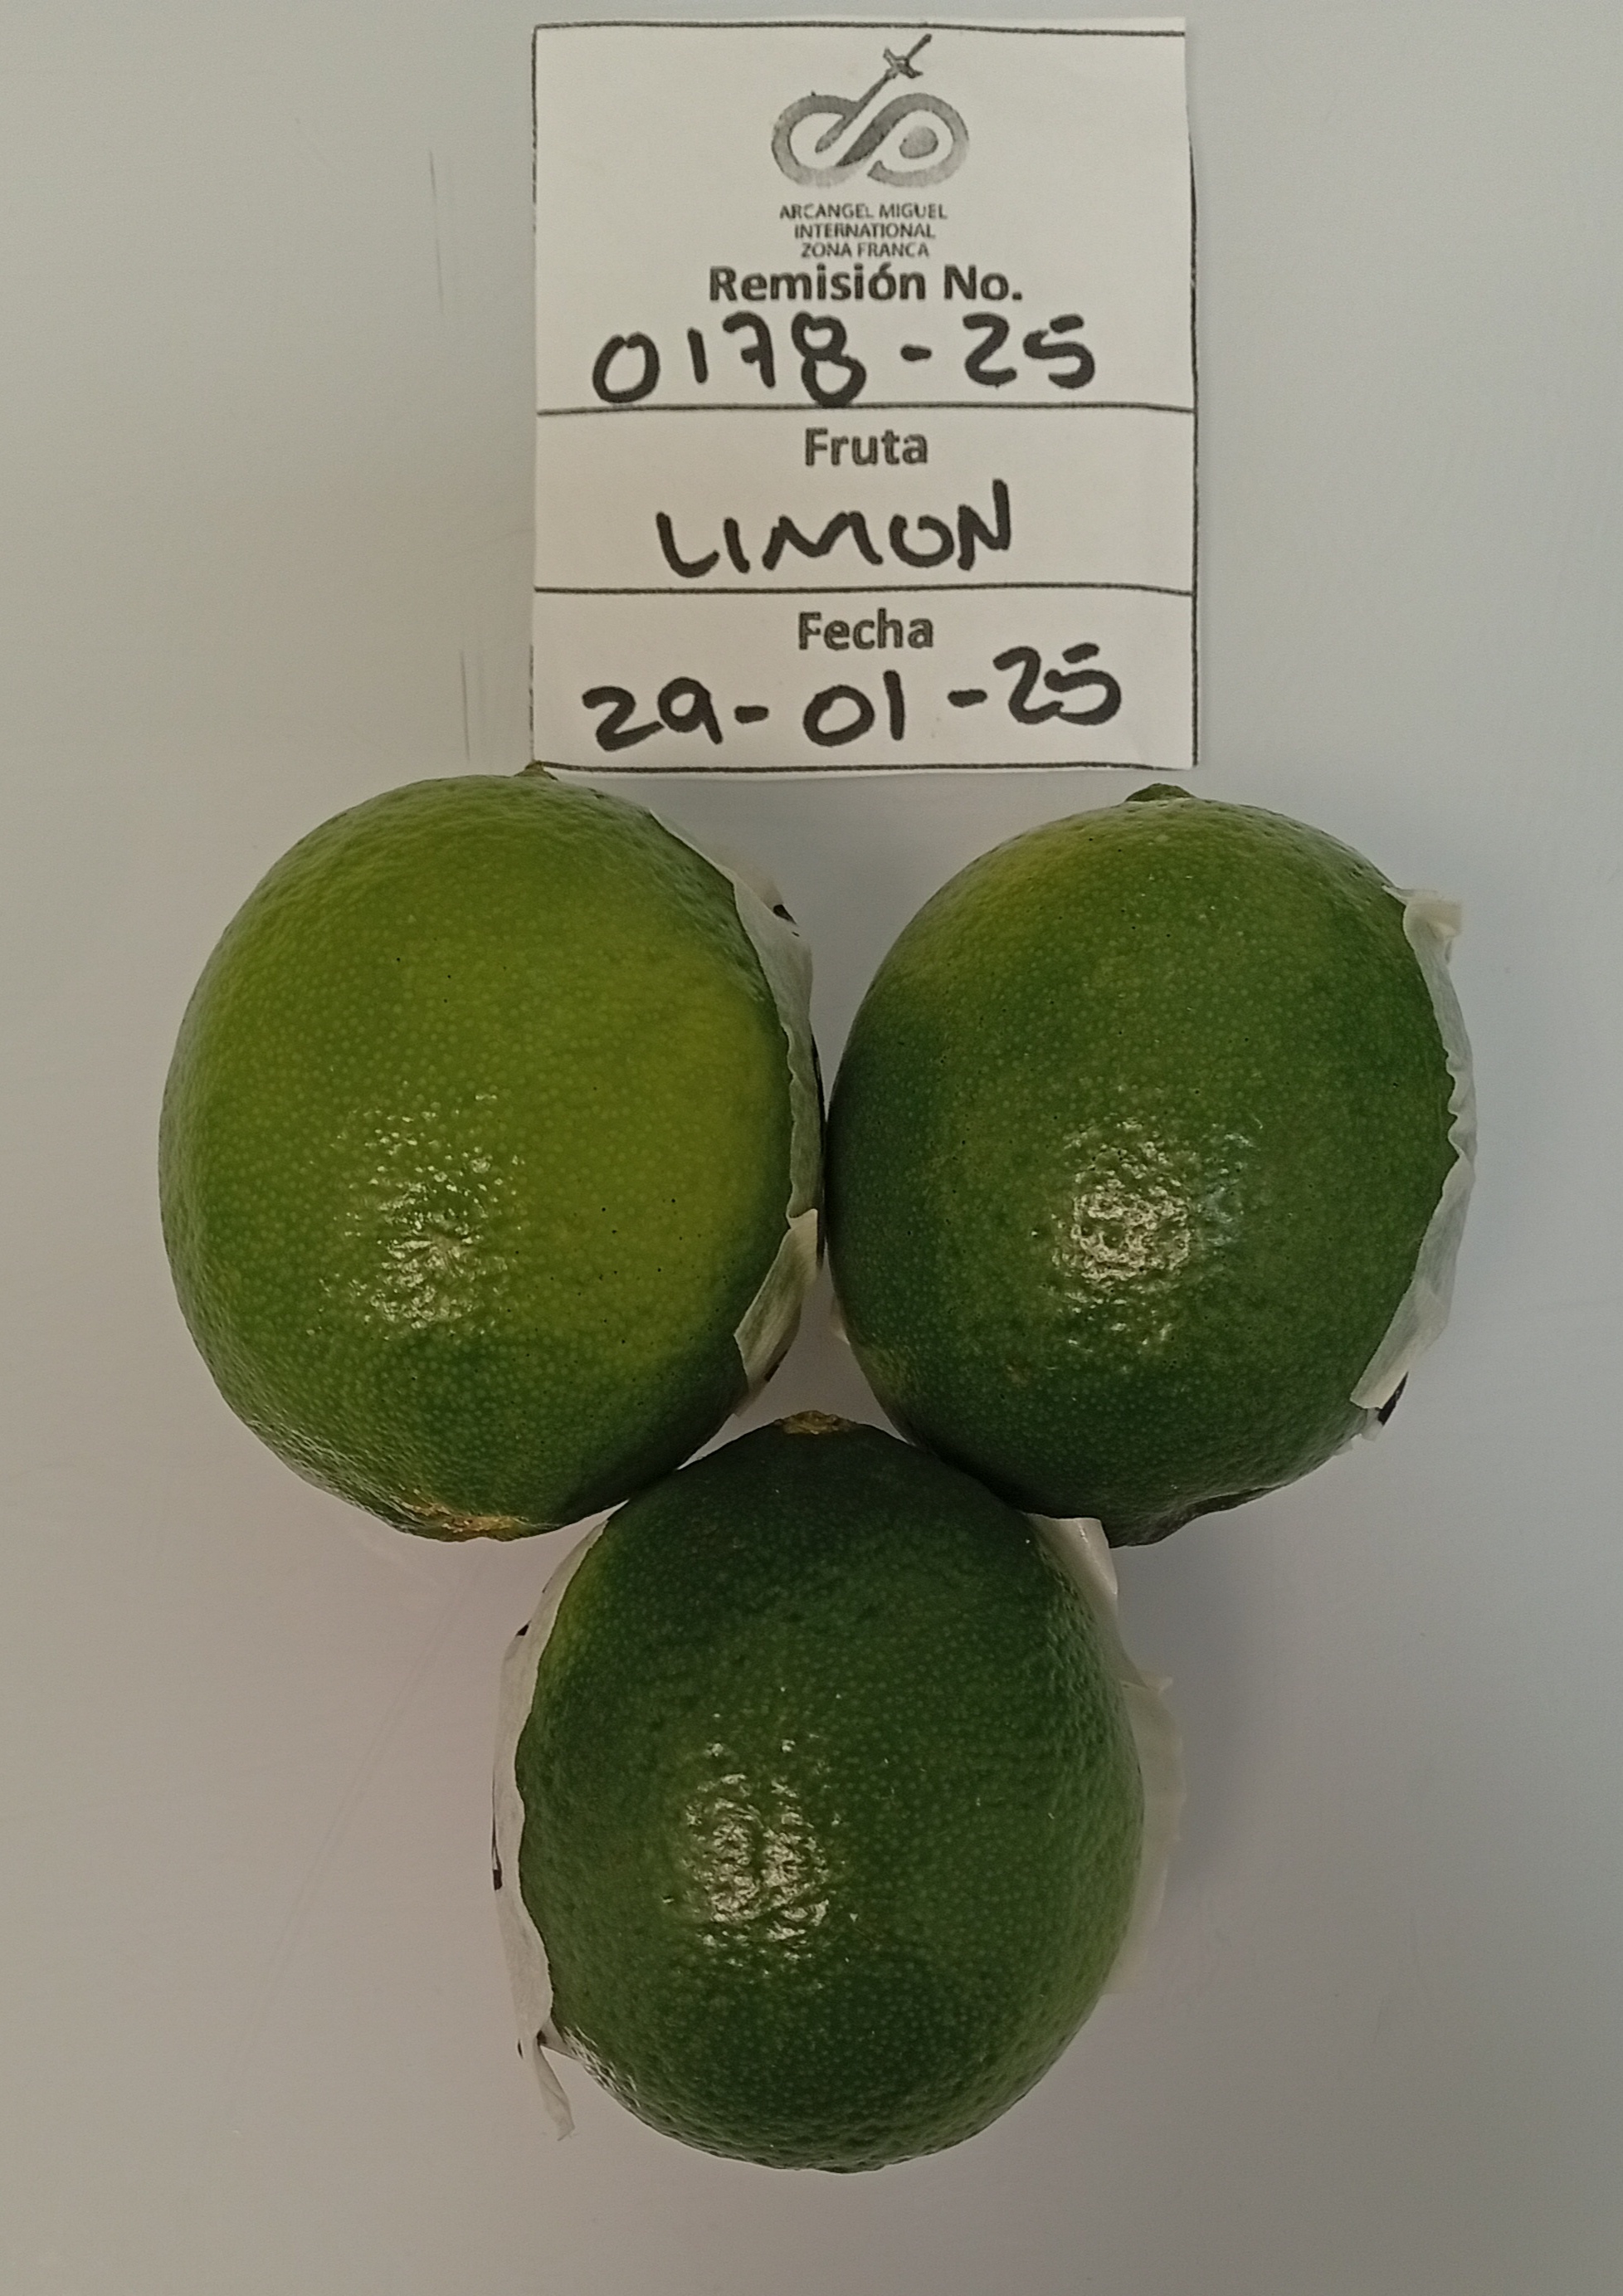 ARCANGEL MIGUEL
INTERNATIONAL
ZONA FRANCA
Remisión No.
0178-25
Fruta
LIMON
Fecha
29-01-25